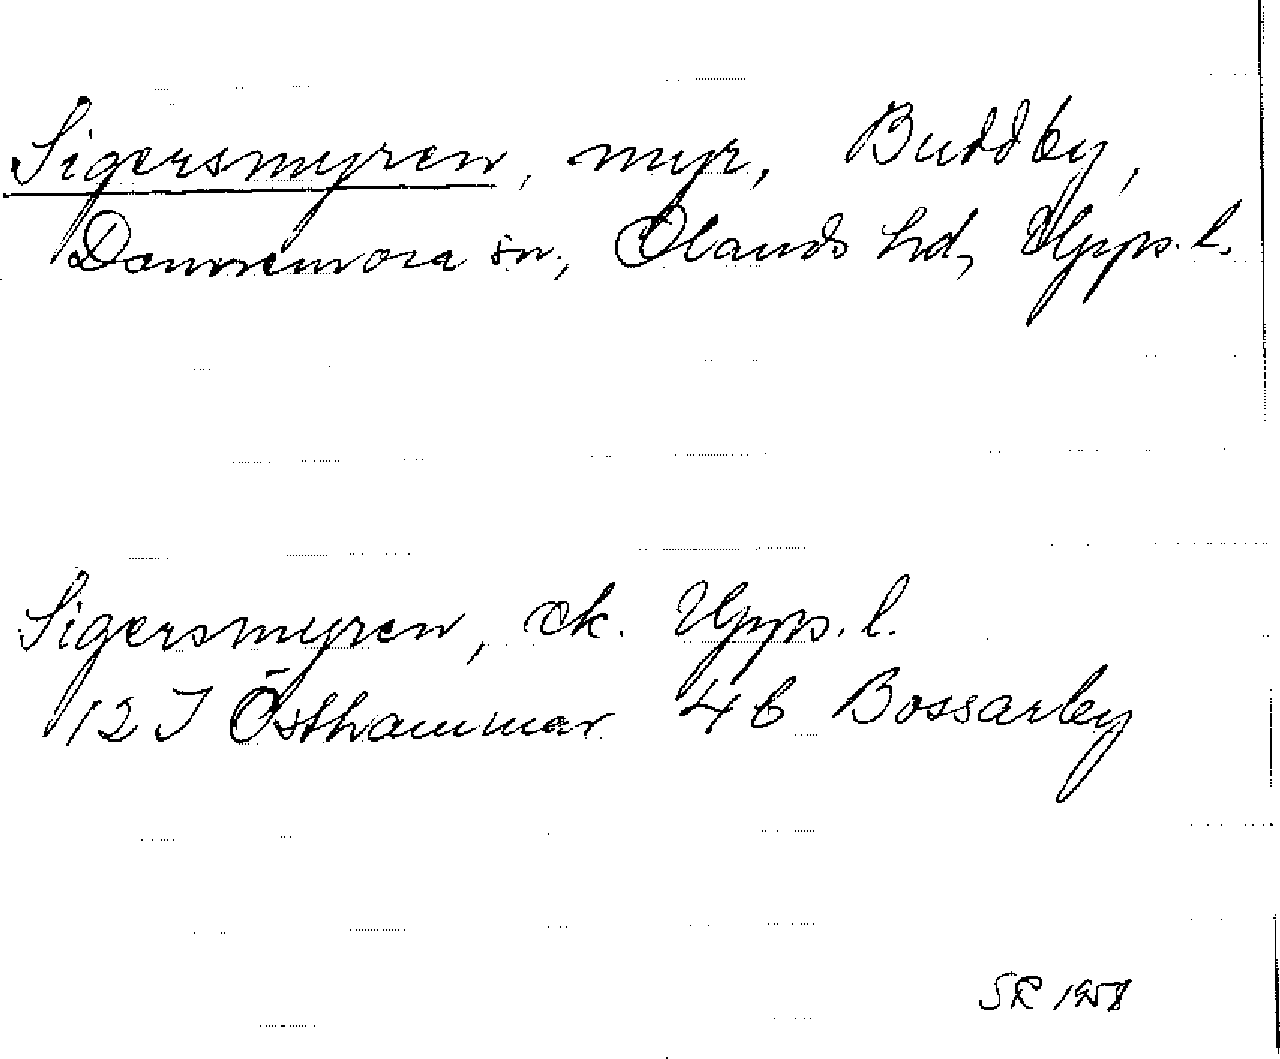 Sigersmyren, myr, Buddby,
Dannemora sn, Olands hd, Upps. l.
Sigersmyren, ek. Upps. l.
12 I Östhammar 4 b Bossarby
SR 1958